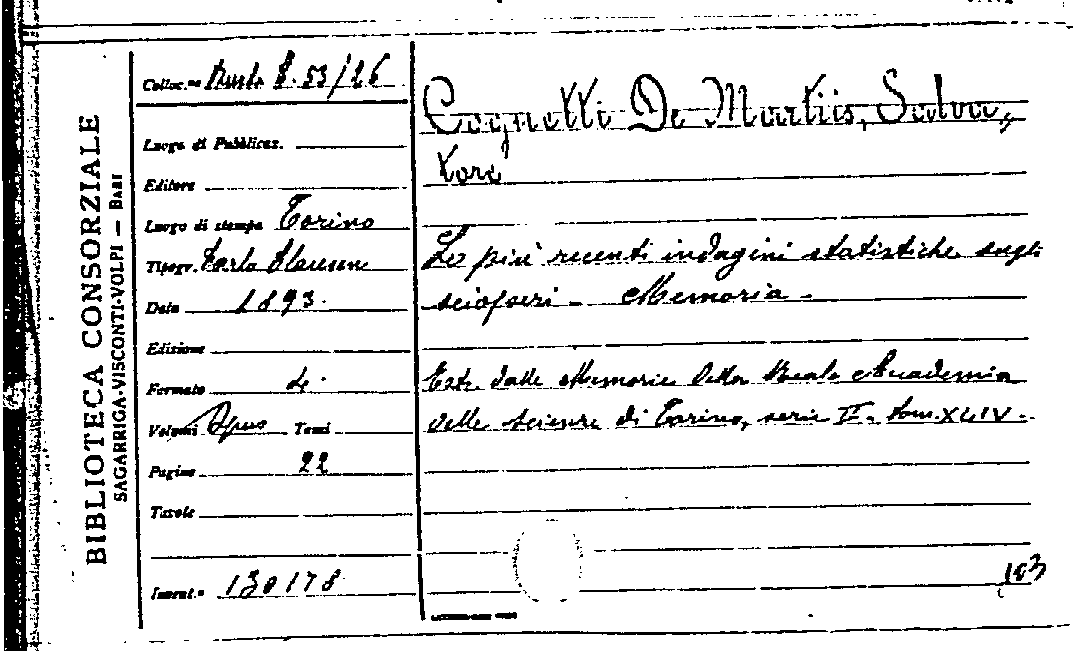 BIBLIOTECA CONSORZIALE
SAGARRIGA-VISCONTI-VOLPI — BARI
Colloc.ne Busta B. 53/26
Luogo di Pubblicaz.
Editore
Luogo di stampa Torino
Tipogr. Carlo Clausen
Data 1893.
Edizione
Formato 4.
Volumi Opus Tomi
Pagine 22
Tavole
Invent.º 130178
Cognetti De Martiis, Salva,
tore
Le più recenti indagini statistiche sugli
scioperi - Memoria -
Estr. dalle Memorie della Reale Accademia
delle scienze di Torino, serie II. tom. XLIV.
103